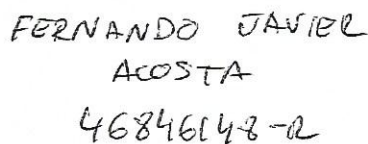 FERNANDO JAVIER
ACOSTA
46846148-R